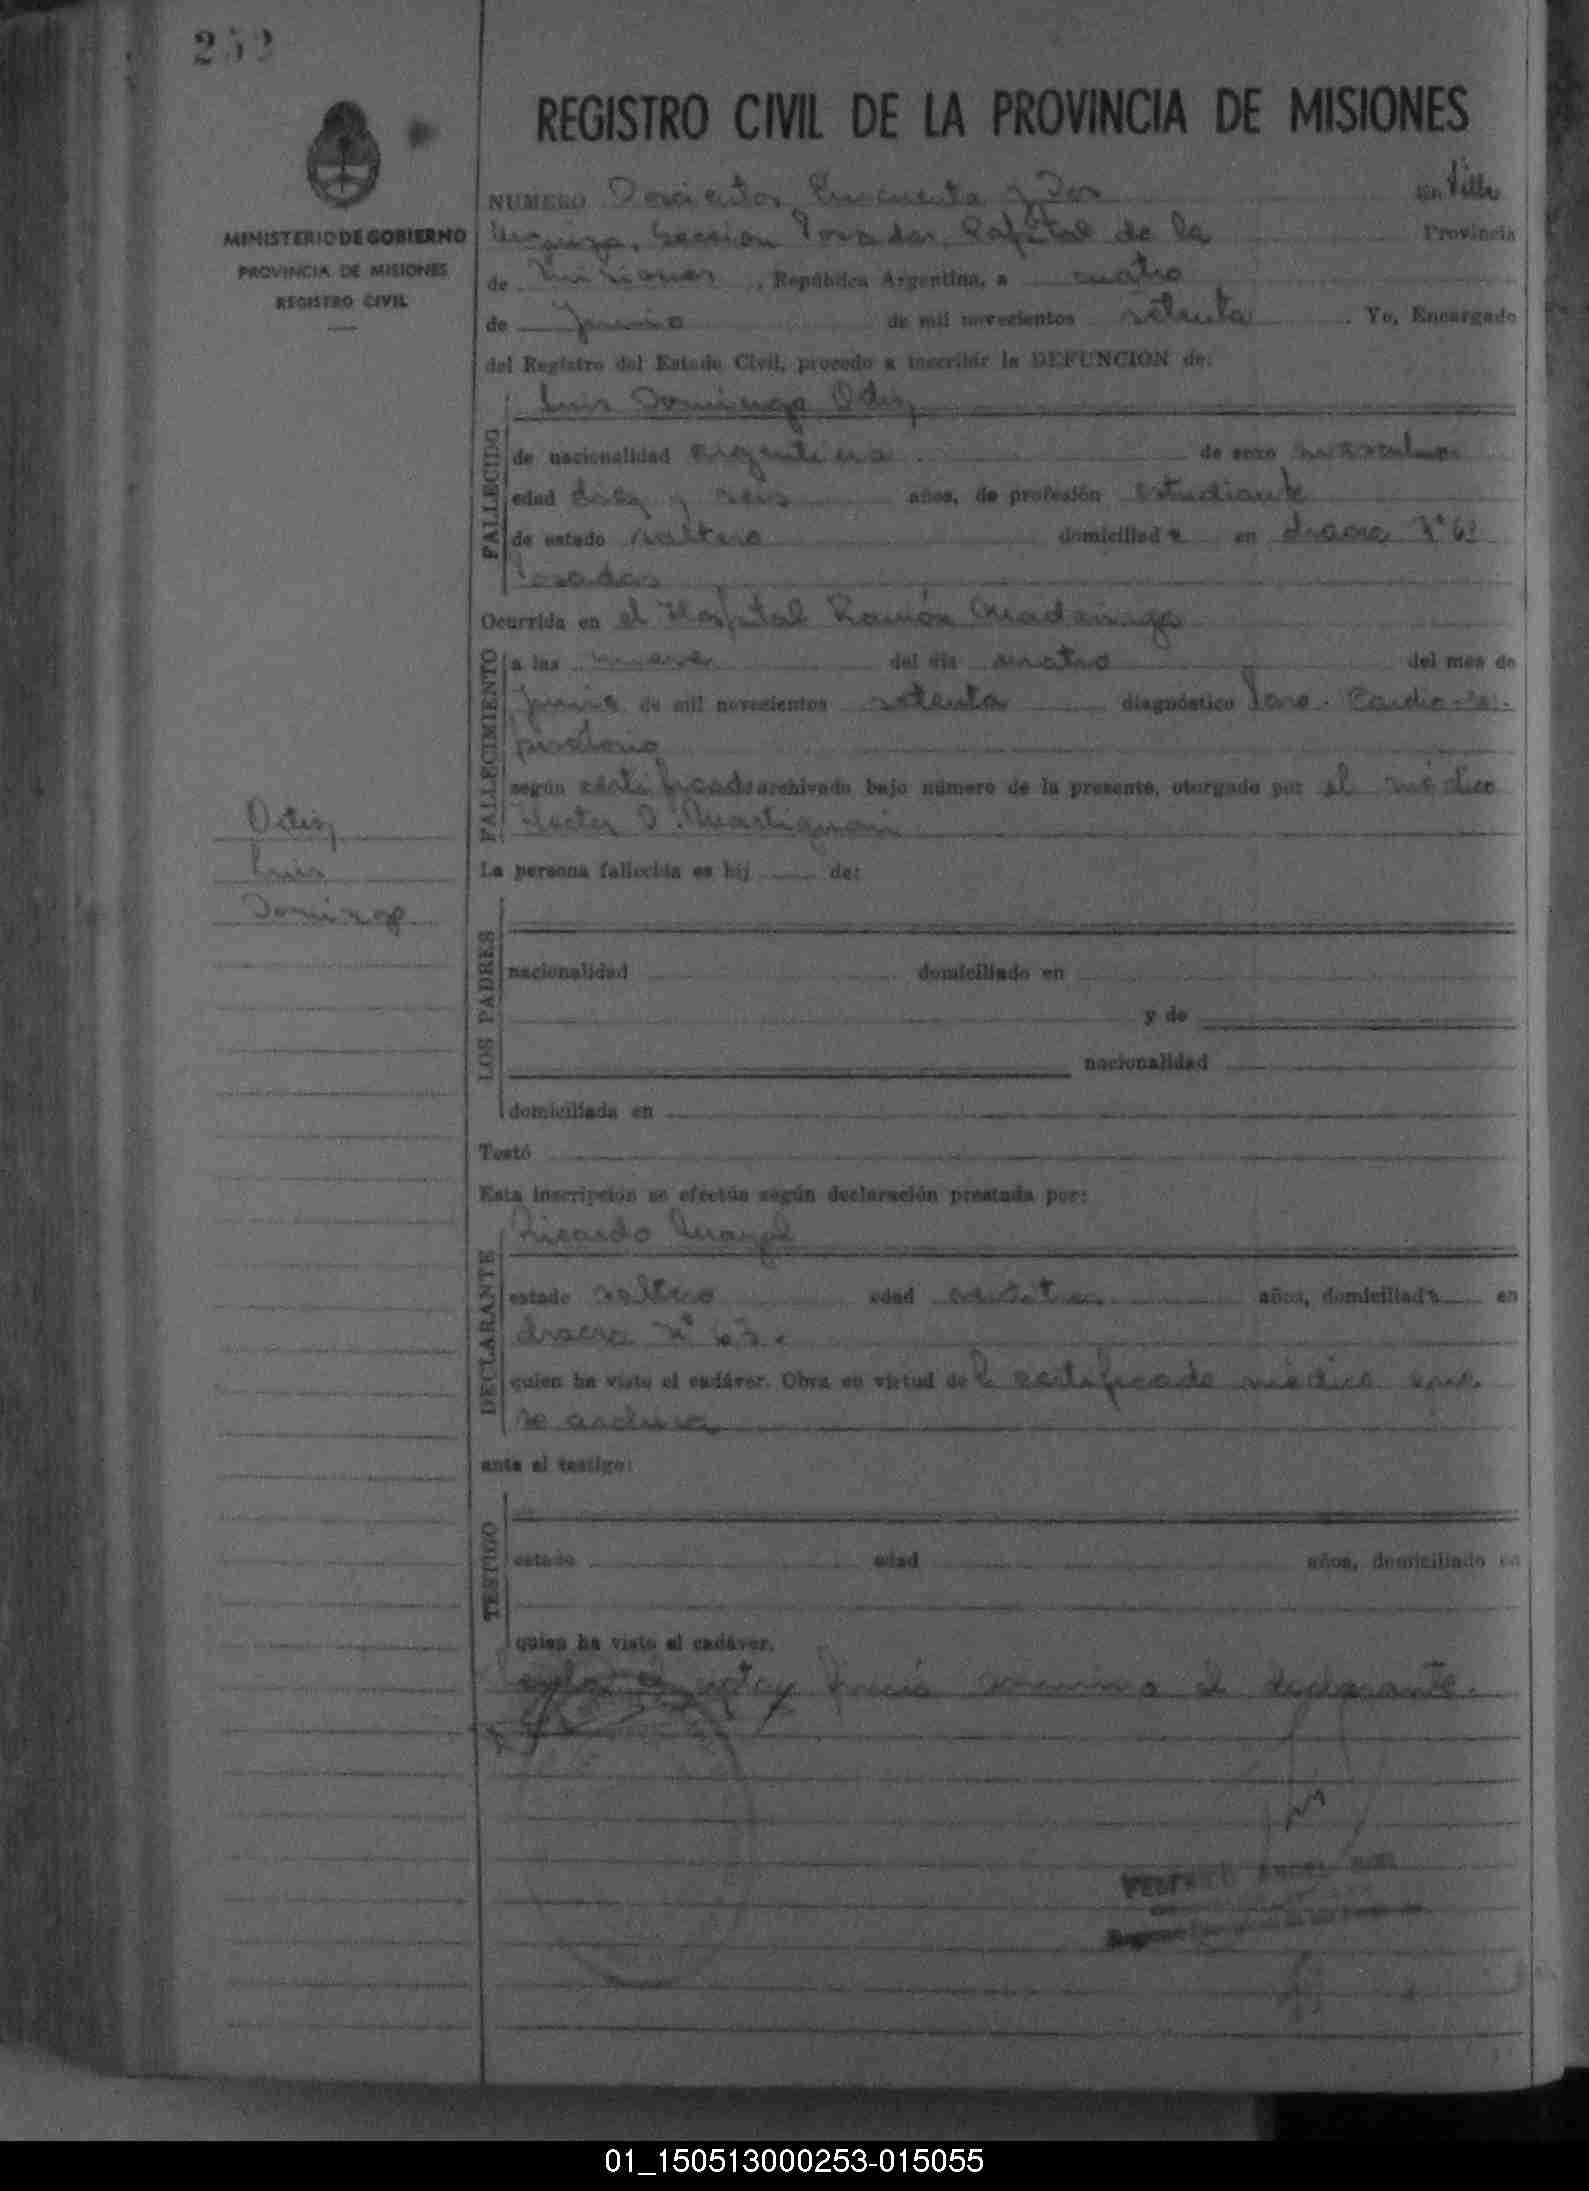 252
REGISTRO CIVIL DE LA PROVINCIA DE MISIONES
MINISTERIO DE GOBIERNO
PROVINCIA DE MISIONES
REGISTRO CIVIL
NUMERO Doscientos Cincuenta y Dos en Villa
Urquiza, Sección Posadas, Capital de la Provincia
de Misiones, República Argentina, a cuatro
de junio de mil novecientos setenta. Yo, Encargado
del Registro del Estado Civil, procedo a inscribir la DEFUNCION de:
FALLECIDO
Luis Domingo Ortiz
de nacionalidad argentina de sexo masculino
edad diez y seis años, de profesión estudiante
de estado soltero domiciliado en chacra Nº 63
Posadas
Ocurrida en el Hospital Ramón Madariaga
FALLECIMIENTO
a las nueve del día cuatro del mes de
junio de mil novecientos setenta diagnóstico Paro. Cardio-res-
piratorio
según certificado archivado bajo número de la presente, otorgado por el médico
Hector O.
Ortiz
Luis
Domingo
La persona fallecida es hij de:
LOS PADRES
nacionalidad domiciliado en
y de
nacionalidad
domiciliada en
Testó
Esta inscripción se efectúa según declaración prestada por:
DECLARANTE
Ricardo
estado soltero edad años, domiciliado en
chacra Nº 63.
quien ha visto el cadáver. Obra en virtud del certificado médico que
se archiva
ante el testigo:
TESTIGO
estado edad años, domiciliado en
quien ha visto el cadáver.
Leída el acta, el declarante.
01_150513000253-015055